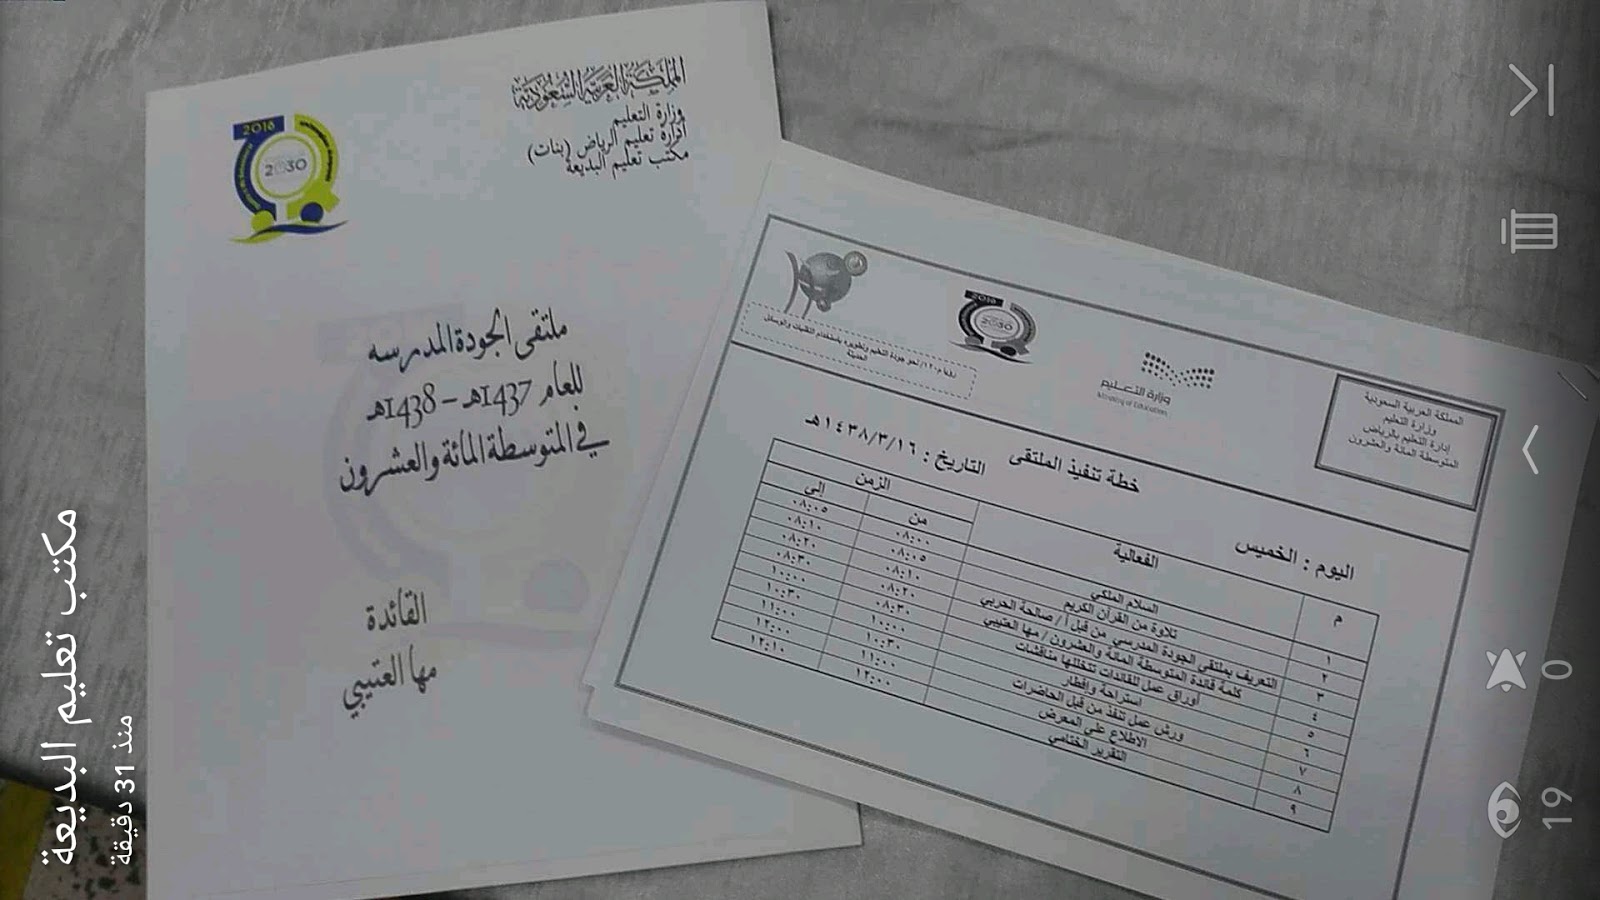 المملكة العربية السعودية
وزارة التعليم
ادارة تعليم الرياض (بنات)
مكتب تعليم البديعة
2016
2030
ملتقى الجودة المدرسه
للعام 1437هـ – 1438هـ
في المتوسطة المائة والعشرون
القائدة
مها العتيبي
المملكة العربية السعودية
وزارة التعليم
إدارة التعليم بالرياض
المتوسطة المائة والعشرون
وزارة التعليم
Ministry of Education
2016
2030
نحو جودة التعليم وتطويره باستخدام التقنيات والوسائل
الحديثة
خطة تنفيذ الملتقى
اليوم : الخميس
التاريخ : ١٤٣٨/٣/١٦هـ
م الفعالية الزمن
من إلى
١ السلام الملكي ٠٨:٠٠ ٠٨:٠٥
٢ تلاوة من القرآن الكريم ٠٨:٠٥ ٠٨:١٠
٣ التعريف بملتقى الجودة المدرسي من قبل أ / صالحة الحربي ٠٨:١٠ ٠٨:٢٠
٤ كلمة قائدة المتوسطة المائة والعشرون / مها العتيبي ٠٨:٢٠ ٠٨:٣٠
٥ أوراق عمل للقائدات تتخللها مناقشات ٠٨:٣٠ ١٠:٠٠
٦ استراحة وإفطار ١٠:٠٠ ١٠:٣٠
٧ ورش عمل تنفذ من قبل الحاضرات ١٠:٣٠ ١١:٠٠
٨ الاطلاع على المعرض ١١:٠٠ ١٢:٠٠
٩ التقرير الختامي ١٢:٠٠ ١٢:١٠
مكتب تعليم البديعة
منذ 31 دقيقة
0
19